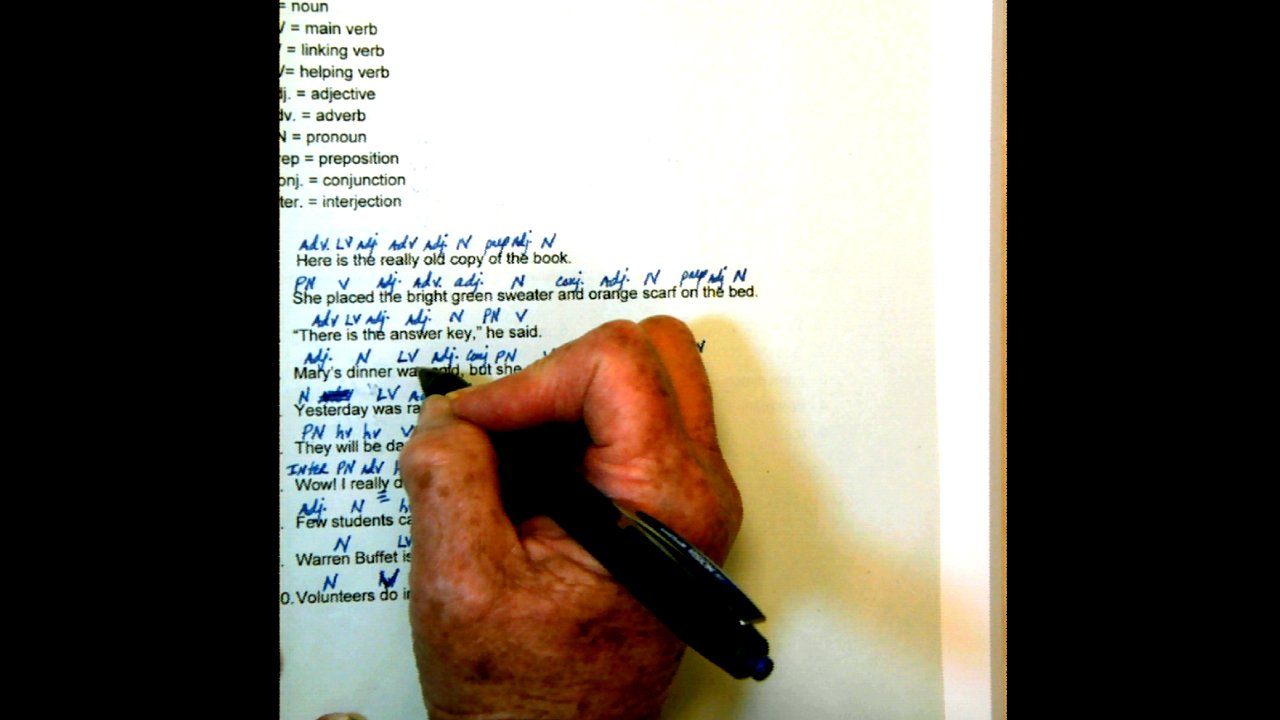 = noun
V = main verb
V = linking verb
V= helping verb
dj. = adjective
dv. = adverb
N = pronoun
rep = preposition
onj. = conjunction
ter. = interjection
Adv. LV Adj Adv Adj. N prep Adj. N
Here is the really old copy of the book.
PN V Adj. Adv. adj. N conj. Adj. N prep Adj N
She placed the bright green sweater and orange scarf on the bed.
Adv LV Adj. Adj. N PN V
“There is the answer key,” he said.
Adj. N LV Adj. conj PN V
Mary's dinner was cold, but she
N LV
Yesterday was ra
PN hv hv V
They will be da
Inter PN Adv
Wow! I really d
Adj. N
Few students ca
N LV
Warren Buffet is
N V
0. Volunteers do